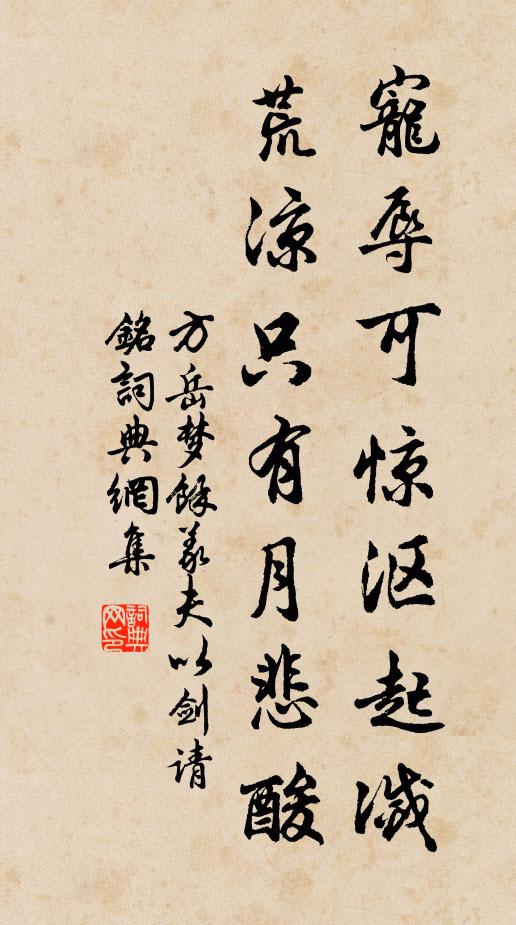 寵辱可惊沤起滅
荒凉只有月悲酸
方岳梦餘义夫以剑请
銘詞典網集
詞典网印